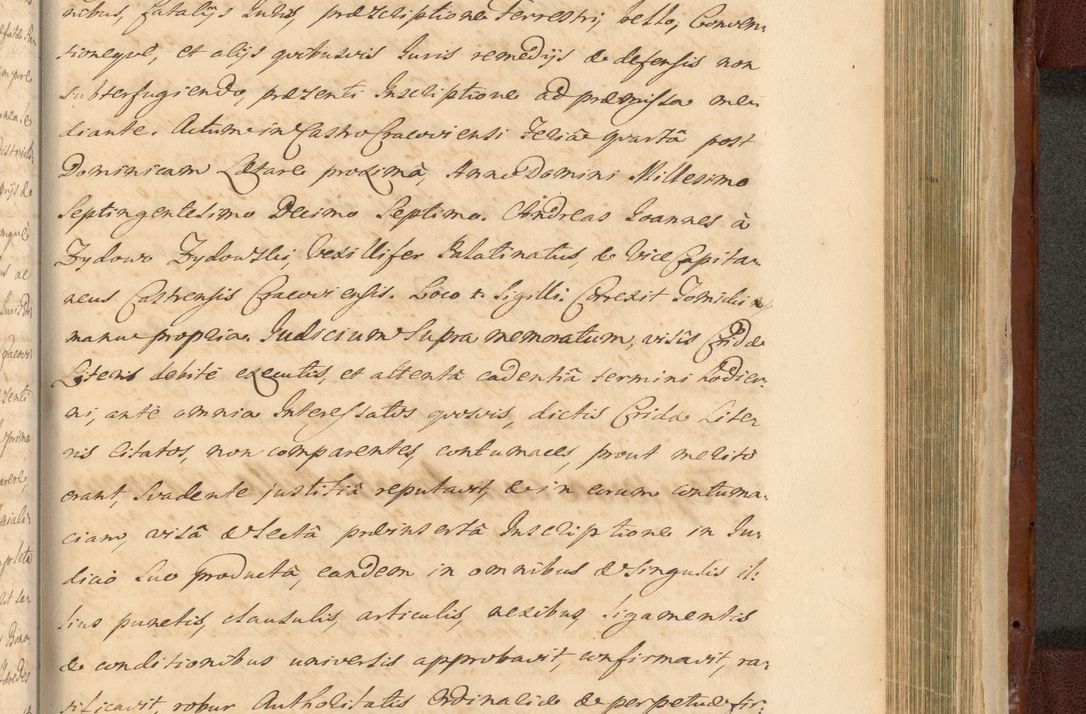 nibus, fatalijs Juris, præscriptione Terrestri, bello, Conven:
tioneque, et alijs quibusvis Juris remedijs & defensis non
subterfugiendo, præsenti Inscriptione ad præmissa me:
diante. Actum in Castro Cracoviensi Feriâ quartâ post
Dominicam Lætare proximâ, Anno Domini Millesimo
Septingentesimo Decimo Septimo. Andreas Joannes à
Zydowo Zydowski, Vexillifer Palatinatus, & Vice Capita:
neus Castrensis Cracoviensis. Loco Sigilli. Correxit
manu propria. Judicium Supra memoratum, visis Cridæ
Literis debitè executis, et attentâ cadentiâ termini hodier:
ni, ante omnia Interessatos quosvis, dictis Cridæ Lite:
ris Citatos, non comparentes, contumaces, prout meritò
erant, Svadente justitiâ reputavit, & in eorum contuma:
ciam, visâ & lectâ præinsertâ Inscriptione in Ju:
dicio Suo productâ, eandem in omnibus & Singulis il:
lius punctis, clausulis, articulis, nexibus, ligamentis
& conditionibus universis approbavit, confirmavit, ra:
tificavit, robur Authoritatis Ordinariæ & perpetuæ fir: